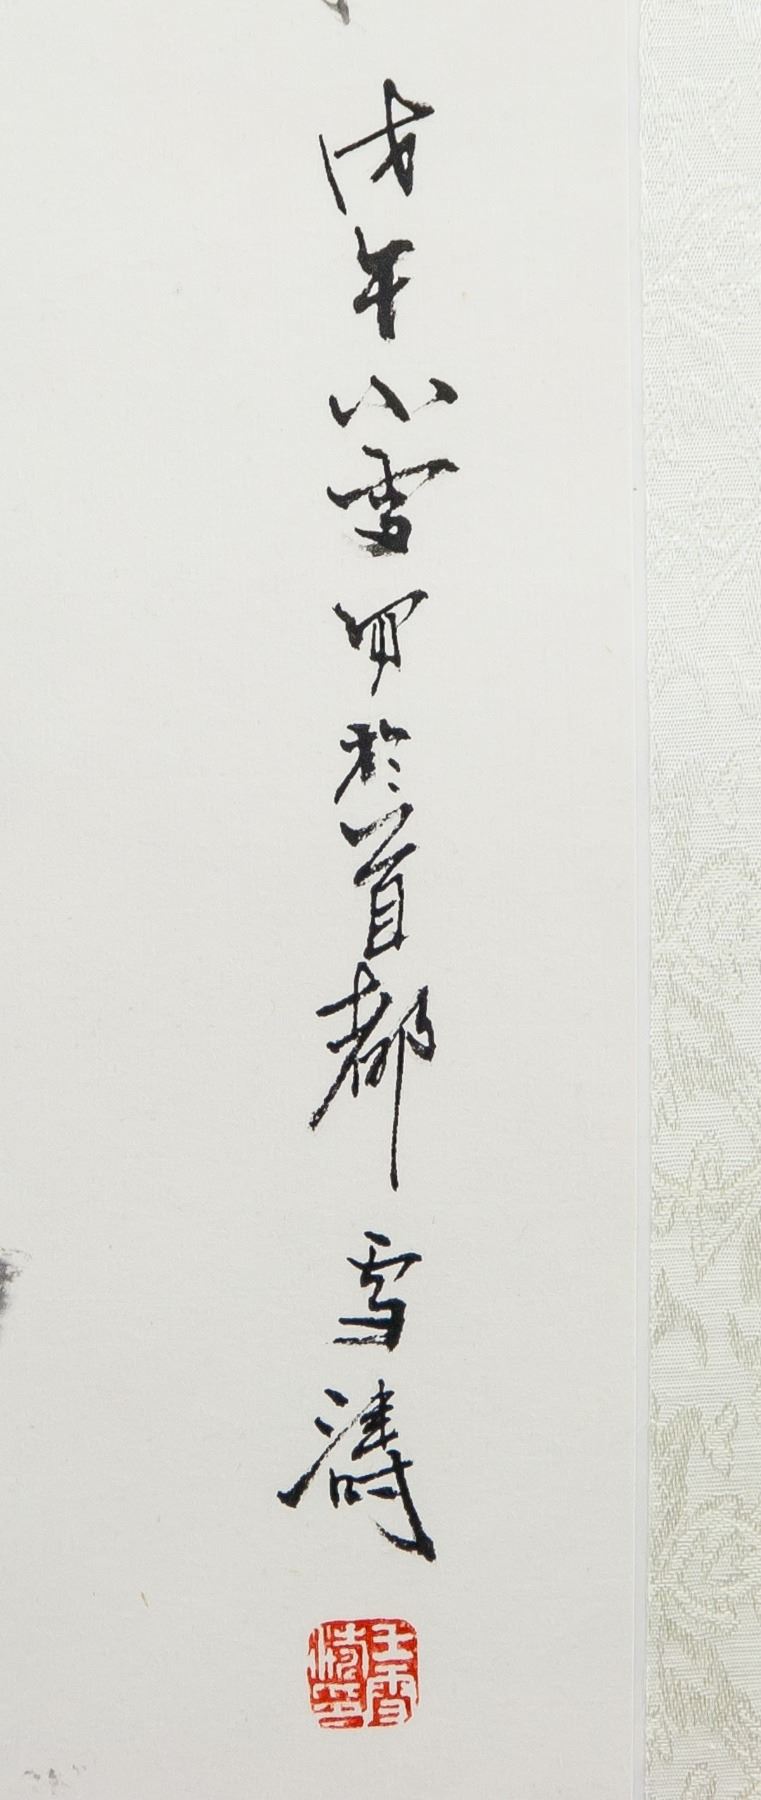 戊午小雪写於首都
雪濤
王雪濤印